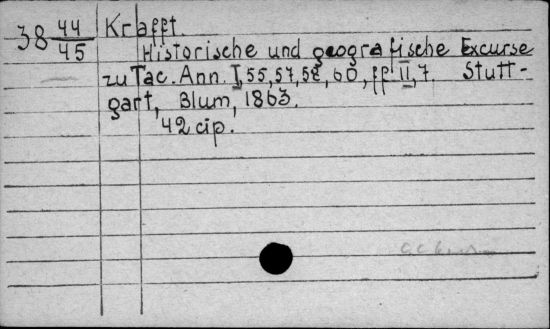 38 44/45 Krafft.
Historische und geografische Excurse
zu Tac. Ann. I, 55, 57, 58, 60, ff II, 7. Stutt-
gart, Blum, 1863.
42 cip.